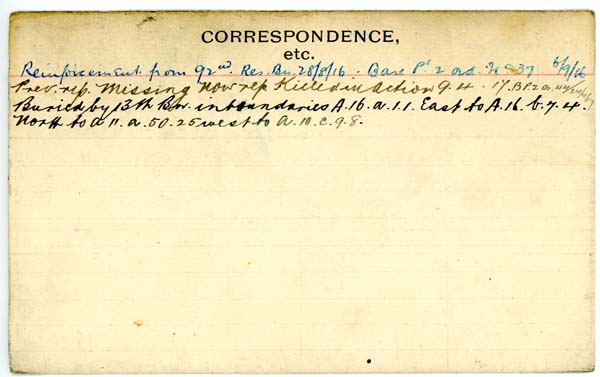 CORRESPONDENCE,
etc.
Reinforcement from 92nd. Res. Bn. 28/8/16 - Base Pt 2 ord. No 37 6/9/16
Prev. rep. Missing now rep Killed in action 9.4.17. B.P.2.O.
Buried by 13th Btn. in boundaries A.16.a.1.1. East to A.16.b.7.4.
North to a 11.a.50.25 west to A.10.c.9.8.